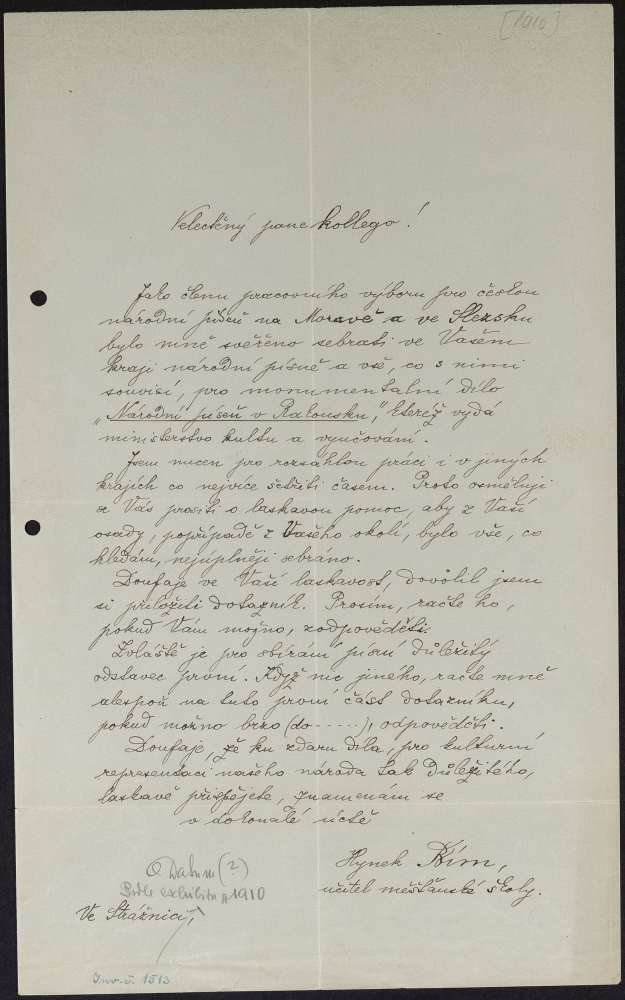 [1910]
Velectěný pane kollego!
Jako členu pracovního výboru pro českou
národní píseň na Moravě a ve Slezsku
bylo mně svěřeno sebrati ve Vašem
kraji národní písně a vše, co s nimi
souvisí, pro monumentalní dílo
„Národní píseň v Rakousku", kteréž vydá
ministerstvo kultu a vyučování.
Jsem nucen pro rozsáhlou práci i v jiných
krajích co nejvíce šetřiti časem. Proto osměluji
se Vás prositi o laskavou pomoc, aby z Vaší
osady, popřípadě z Vašeho okolí, bylo vše, co
hledám, nejúplněji sebráno.
Doufaje ve Vaší laskavost, dovolil jsem
si přiložiti dotazník. Prosím, račte ho,
pokud Vám možno, zodpověděti.
Zvláště je pro sbírání písní důležitý
odstavec první. Když nic jiného, račte mně
alespoň na tuto první část dotazníku,
pokud možno brzo (do -----), odpověděti.
Doufaje, že ku zdaru díla, pro kulturní
representaci našeho národa tak důležitého,
laskavě přispějete, znamenám se
v dokonalé úctě
Hynek Bím,
učitel měšťanské školy.
Datum (?)
Podle exhibitu 1910
Ve Strážnici,
Inv. č. 1513